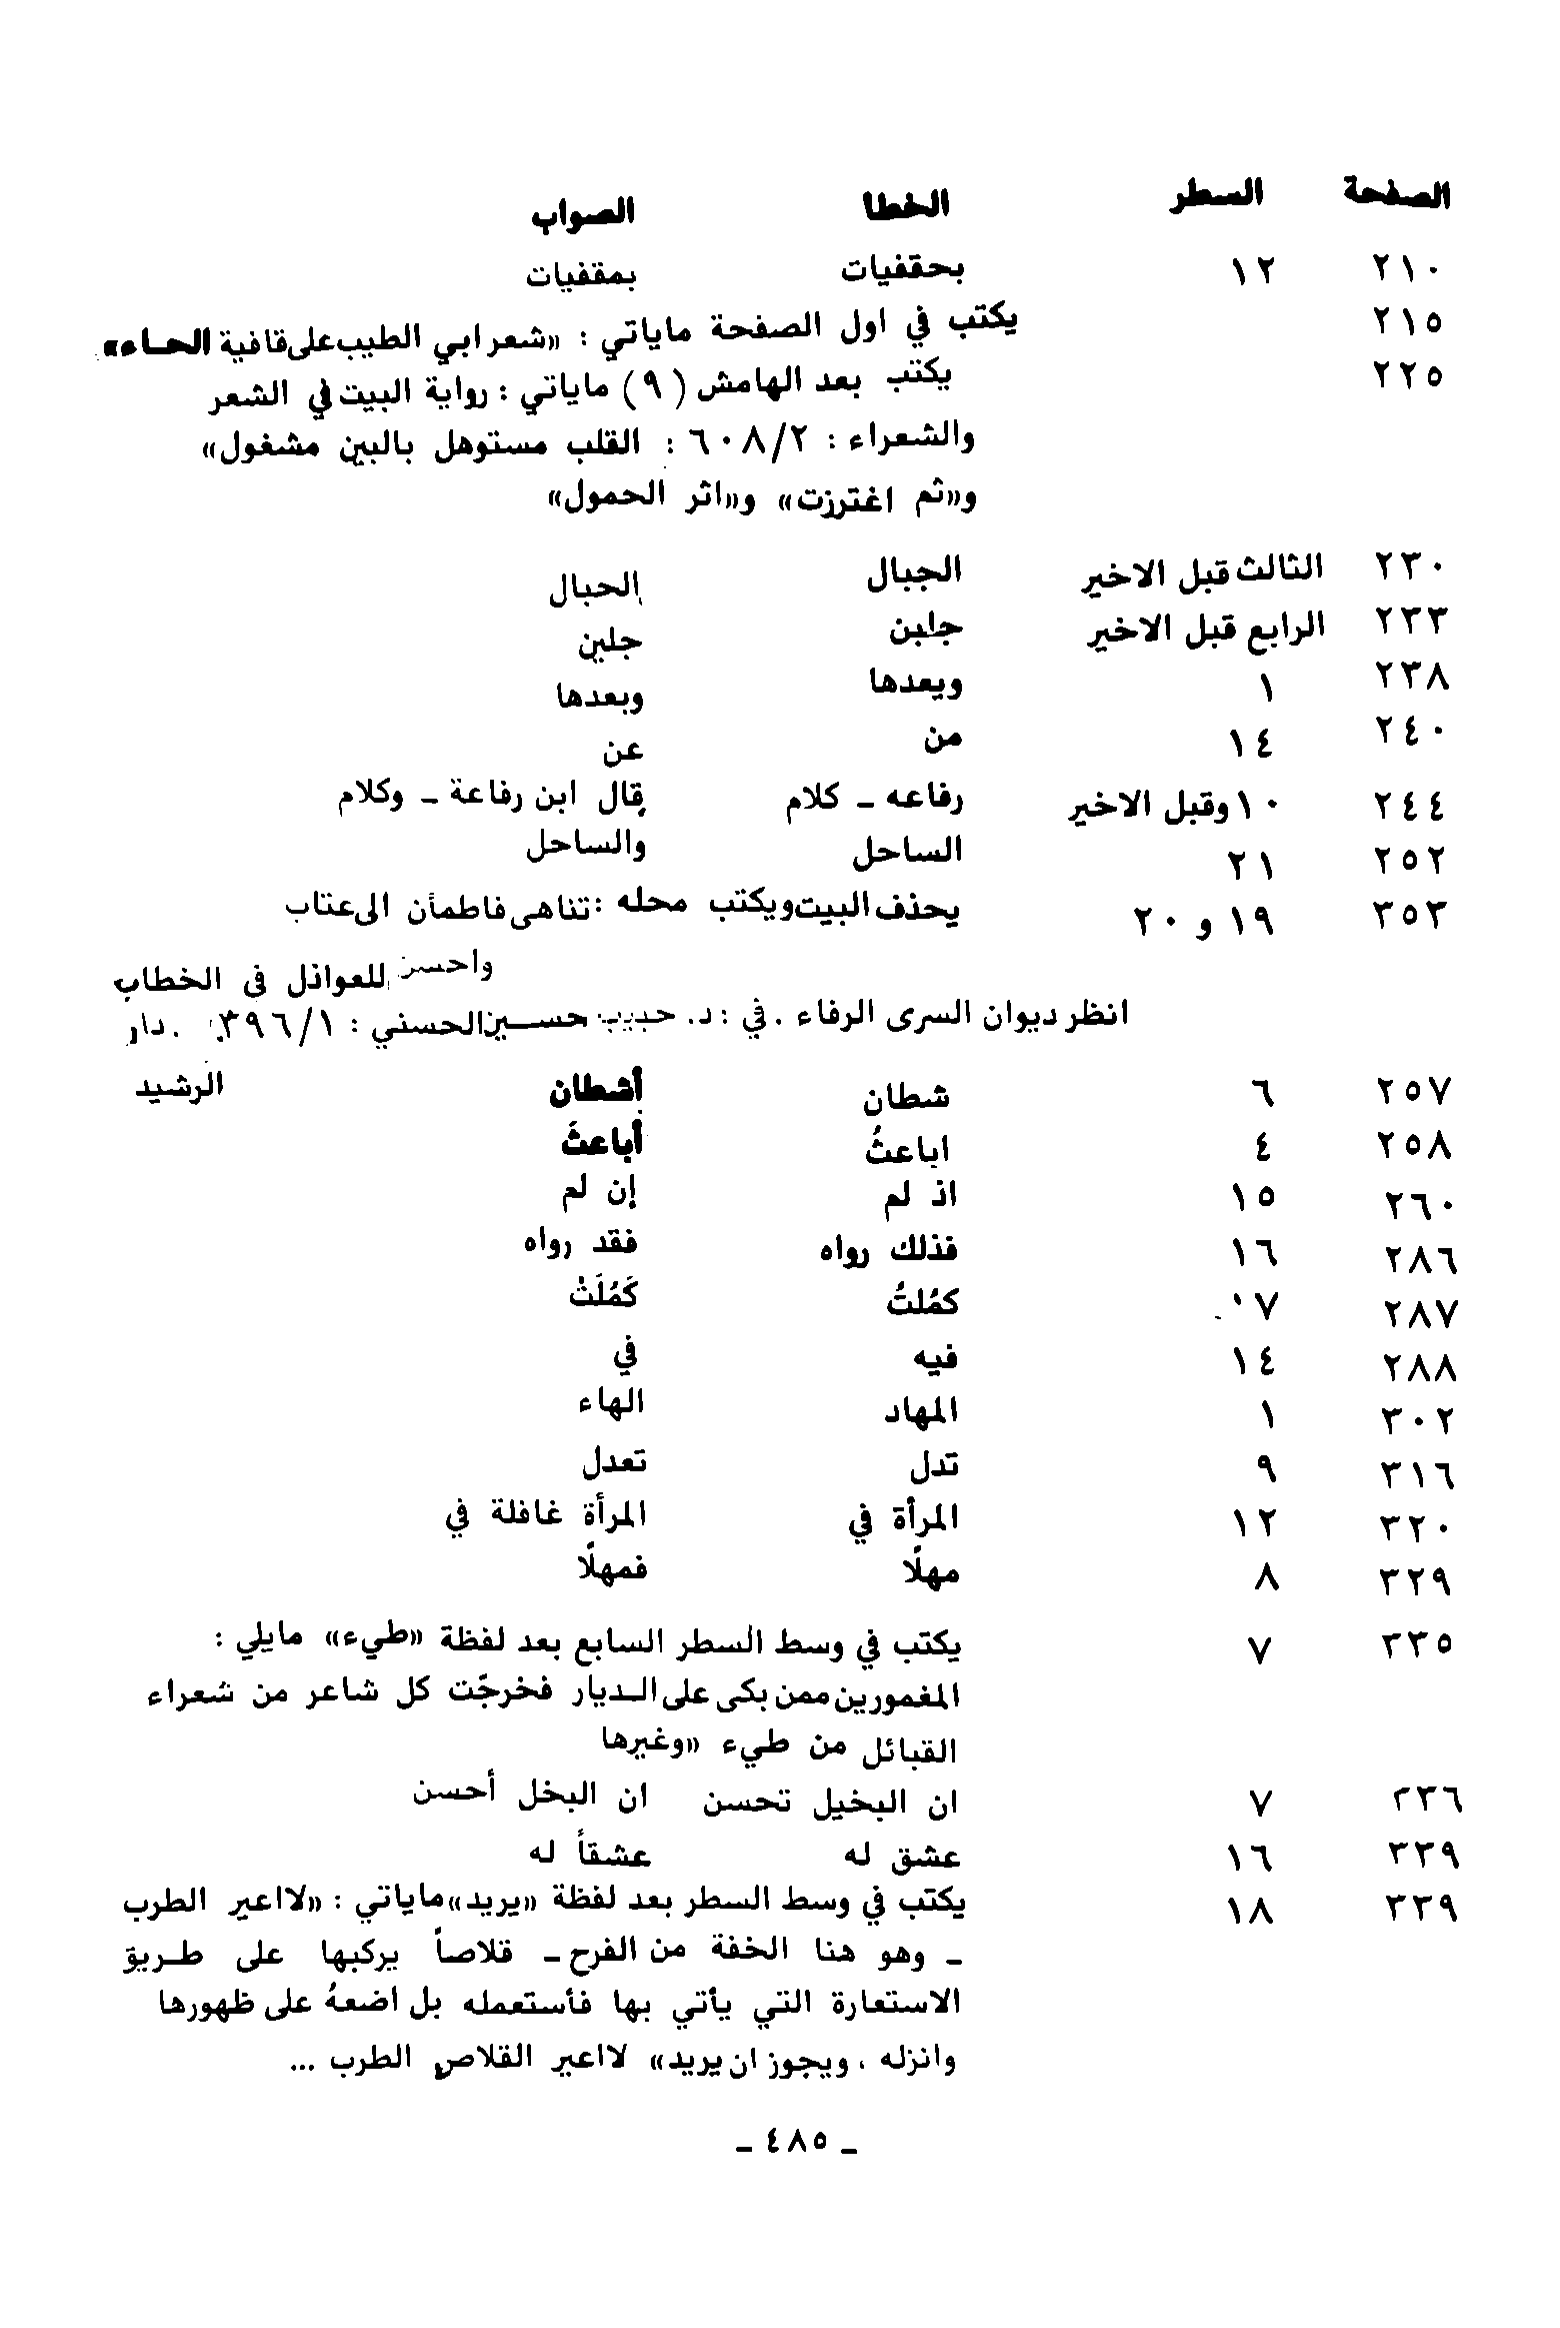 الصفحة السطر الخطا الصواب
٢١٠ ١٢ بحقفيات بمقفيات
٢١٥ يكتب في اول الصفحة ماياتي : «شعر ابي الطيب على قافية الحاء»
٢٢٥ يكتب بعد الهامش (٩) ماياتي : رواية البيت في الشعر
والشعراء : ٦٠٨/٢ : القلب مستوهل بالبين مشغول»
و«ثم اغترزت» و«اثر الحمول»
٢٣٠ الثالث قبل الاخير الجبال الحبال
٢٣٣ الرابع قبل الاخير جلبن جلين
٢٣٨ ١ ويعدها وبعدها
٢٤٠ ١٤ من عن
٢٤٤ ١٠ وقبل الاخير رفاعه ـ كلام قال ابن رفاعة ـ وكلام
٢٥٢ ٢١ الساحل والساحل
٣٥٣ ١٩ و ٢٠ يحذف البيت ويكتب محله : تناهى فاطمأن الى عتاب
واحسن للعواذل في الخطاب
انظر ديوان السرى الرفاء . في : د. حبيب حسين الحسني : ٣٩٦/١ . دار
الرشيد
٢٥٧ ٦ شطان أشطان
٢٥٨ ٤ اباعثُ أباعثَ
٢٦٠ ١٥ اذ لم إن لم
٢٨٦ ١٦ فذلك رواه فقد رواه
٢٨٧ ٧ كمُلتُ كَمُلَتْ
٢٨٨ ١٤ فيه في
٣٠٢ ١ المهاد الهاء
٣١٦ ٩ تدل تعدل
٣٢٠ ١٢ المرأة في المرأة غافلة في
٣٢٩ ٨ مهلًا فمهلًا
٣٣٥ ٧ يكتب في وسط السطر السابع بعد لفظة «طيء» مايلي :
المغمورين ممن بكى على الديار فخرجّت كل شاعر من شعراء
القبائل من طيء «وغيرها
٣٣٦ ٧ ان البخيل تحسن ان البخل أحسن
٣٣٩ ١٦ عشق له عشقاً له
٣٣٩ ١٨ يكتب في وسط السطر بعد لفظة «يريد» ماياتي : «لااعير الطرب
ـ وهو هنا الخفة من الفرح ـ قلاصاً يركبها على طريق
الاستعارة التي يأتي بها فأستعمله بل اضعهُ على ظهورها
وانزله ، ويجوز ان يريد» لااعير القلاص الطرب ...
ـ ٤٨٥ ـ